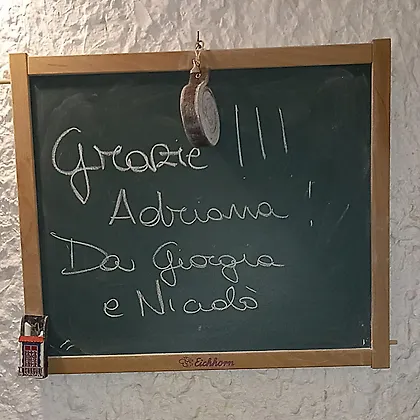 Grazie !!!
Adriana !
Da Giorgia
e Nicolò
Eichhorn